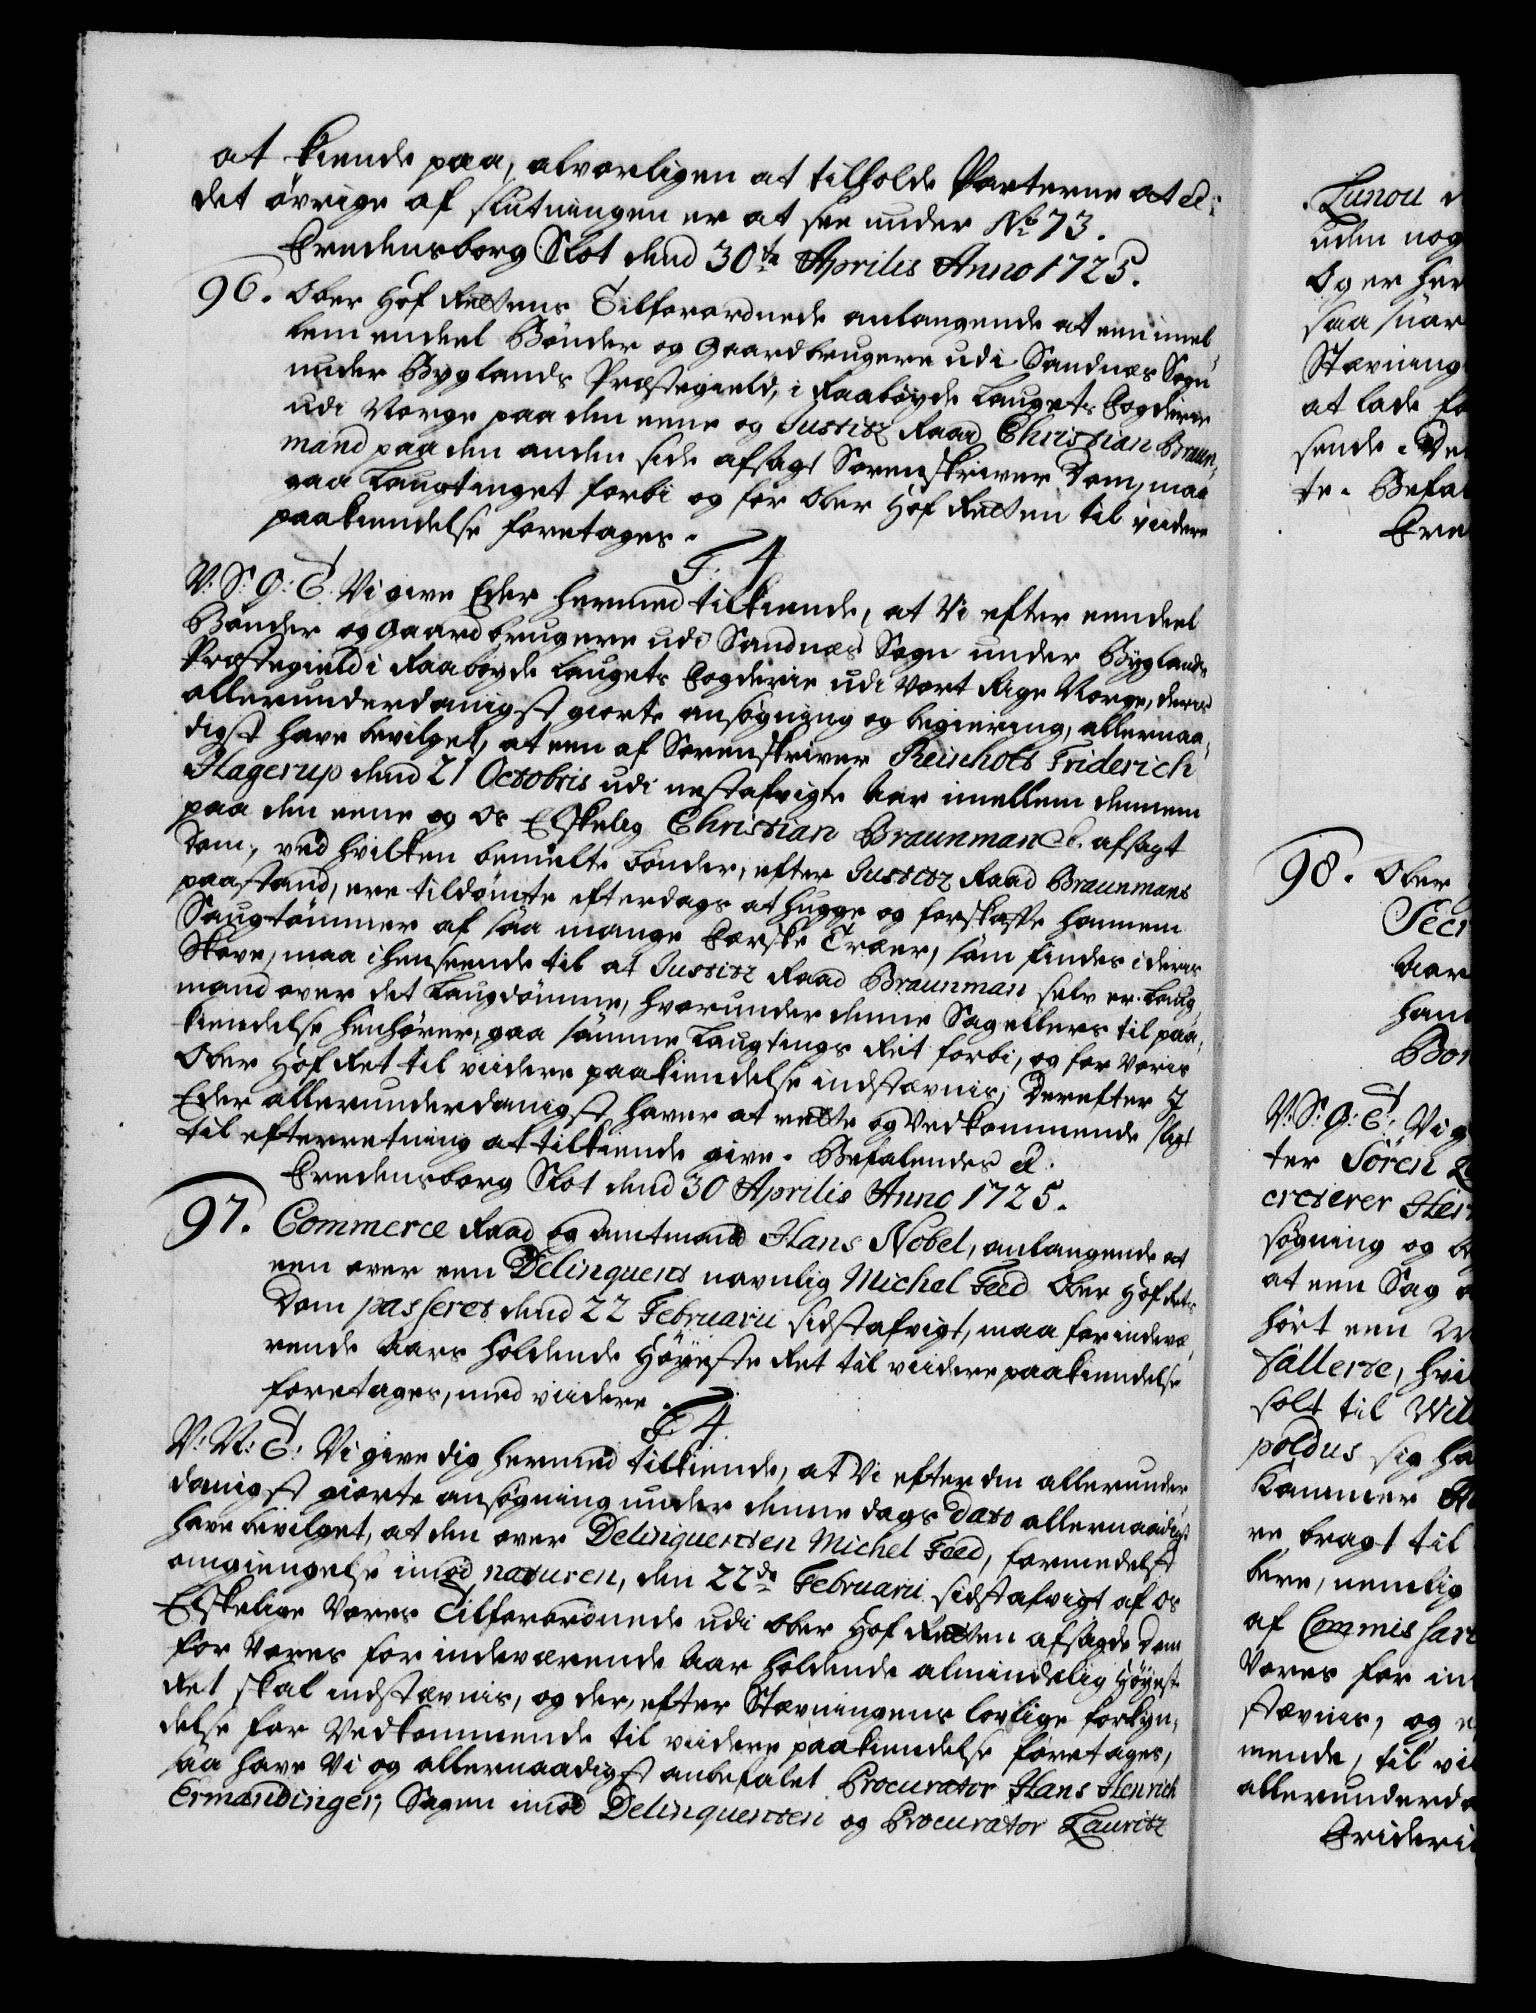 at kiende paa, alvorligen at tilholde Parterne at &:
det övrige af slutningen er at see under No 73.
Fredensborg Slot dend 30te Aprilis Anno 1725.
96. Ober Hof Rettens Tilforordnede anlangende at een imel
lem endeel Bönder og Gaardbrugere udi Sandnæs Sogn
under Byglands Præstegield, i Raabøyde Laugets Fogderie
udi Norge paa den eene og Justitz Raad Christian Braun,
mand paa den anden side afsagt Sorenskriver Dom, maa
gaa Laugtinget forbi og for Ober Hof Retten til viidere
paakiendelse foretages.
F: 4
V: S: G: T: Vi give Eder hermed tilkiende, at Vi efter eendeel
Bönder og Gaardbrugere udi Sandnæs Sogn under Byglands
Præstegield i Raabøyde Laugets Fogderie udi Vort Rige Norge, deris
allerunderdanigst giorte ansøgning og begiering, allernaa,
digst have bevilget, at een af Sorenskriver Reinholt Friderich
Hagerup dend 21 Octobris udi nestafvigte Aar imellem dennem
paa den eene og Os Elskelig Christian Braunmand &. afsagt
Dom, ved hvilken bemelte Bønder, efter Justitz Raad Braunmans
paastand, ere tildömte efterdags at hugge og forskaffe hannem
Saugtömmer af saa mange Færske Træer, som findes i deris
Skove, maa i henseende til at Justitz Raad Braunman selv er Laug
mand over det Laugdömme, hvorunder denne Sag ellers til paa,
kiendelse henhører, gaa samme Laugtings Ret forbi, og for Voris
Ober Hof Ret til viidere paakiendelse indstævnis; Derefter I
Eder allerunderdanigst haver at rette og Vedkommende sligt
til efterretning at tilkiende give. Befalendes &.
Fredensborg Slot dend 30 Aprilis Anno 1725.
97. Commerce Raad og Amtmand Hans Nobel, anlangende at
een over een Delinquent navnlig Michel Feed Ober Hof Rets
Dom passeret dend 22 Februarii sidstafvigt, maa for indevæ,
rende Aars holdende Höyeste Ret til viidere paakiendelse
foretages, med viidere.
F: 4
V: V: T: Vi give dig hermed tilkiende, at Vi efter din allerunder
danigst giorte ansøgning under denne dags dato allernaadigst
have bevilget, at den over Delinquenten Michel Feed, formedelst
omgiengelse imod naturen, den 22de Februarii sidstafvigt af Os
Elskelige Vores Tilforordnede udi Ober Hof Retten afsagde Dom
for Vores for indeværende Aar holdende almindelig Höyest
Ret skal indstævnis, og der, efter Stævningens lovlige forkyn,
delse for Vedkommende til viidere paakiendelse foretages,
saa have Vi og allernaadigst anbefalet Procurator Hans Henrich
Ermandinger, Sagen imod Delinquenten og Procurator Lauritz
Lunou
uden nog
Og er her
saa snar
Stævning
at lade fo
sende. De
te. Befal
Fre
98. Ober
Secr
Aar
ham
Bor
V: S: G: T: Vi g
ter Sören
creterer Her
søgning og be
at een Sag
hört een
Tallerte, hvi
solt til Wil
poldus sig ha
Kammer
re bragt til
bere, nemlig
af Commissar
Vores for in
stævnis, og
mende, til vii
allerunderda
Frideri